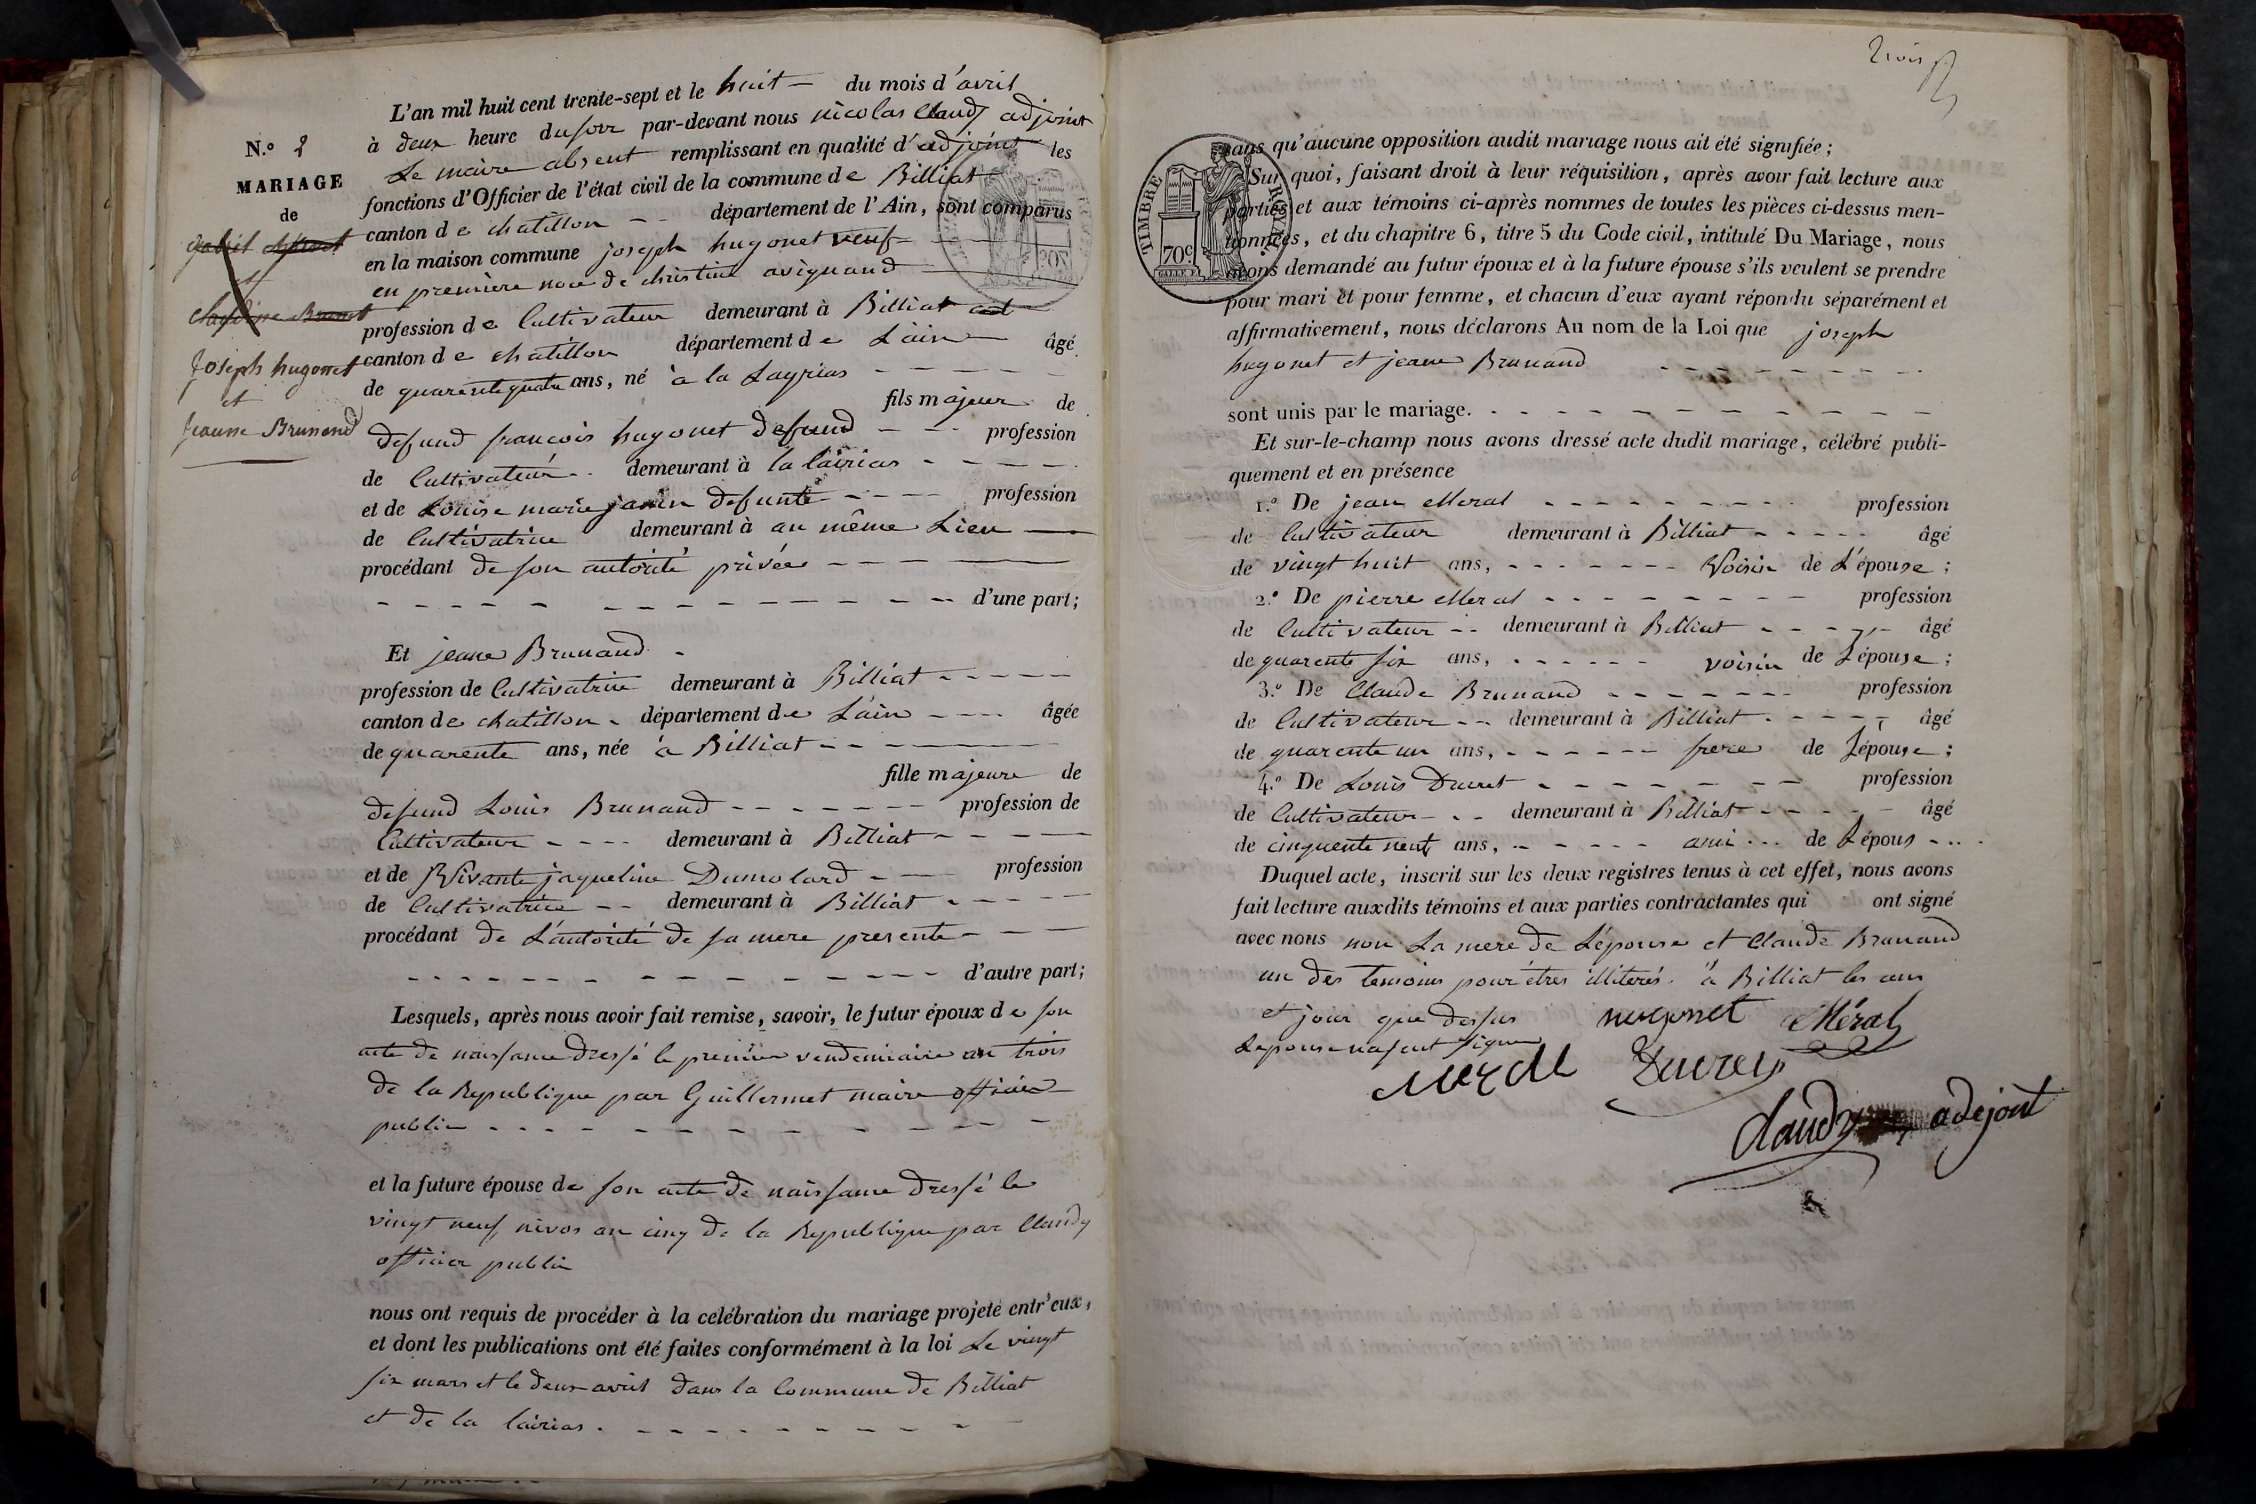 N.o 2
MARIAGE
de
gabriel
et
claudine Brunet
Joseph hugonet
et
Jeanne Brunand
L'an mil huit cent trente-sept et le huit du mois d'avril
à deux heure du soir par-devant nous nicolas Claudy adjoint
Le maire absent remplissant en qualité d'adjoint les
fonctions d'Officier de l'état civil de la commune de Billiat
canton de chatillon département de l'Ain, sont comparus
en la maison commune joseph hugonet veuf
en première noce de christine avignand
profession de Cultivateur demeurant à Billiat
canton de chatillon département de L'ain âgé
de quarente quatre ans, né à la Layrias
fils majeur de
defund francois hugonet defund profession
de Cultivateur demeurant à la lairias
et de Louise marie janin defunte profession
de Cultivatrice demeurant à au même Lieu
procédant de son autorité privée
d'une part;
Et jeane Brunand
profession de Cultivatrice demeurant à Billiat
canton de chatillon département de L'ain âgée
de quarente ans, née à Billiat
fille majeure de
defund Louis Brunand profession de
Cultivateur demeurant à Billiat
et de Vivante jaqueline Dumolard profession
de Cultivatrice demeurant à Billiat
procédant de L'autorité de sa mere presente
d'autre part;
Lesquels, après nous avoir fait remise, savoir, le futur époux de son
acte de naissance dressé le premier vendemiaire an trois
de la Republique par Guillermet maire officier
public
et la future épouse de son acte de naissance dressé le
vingt neuf nivos an cinq de la Republique par Claudy
officier public
nous ont requis de procéder à la celébration du mariage projeté entr'eux,
et dont les publications ont été faites conformément à la loi Le vingt
six mars et le deux avril dans la Commune de Billiat
et de la lairias.
trois
TIMBRE ROYAL
70c
sans qu'aucune opposition audit mariage nous ait été signifiée;
Sur quoi, faisant droit à leur réquisition, après avoir fait lecture aux
parties et aux témoins ci-après nommes de toutes les pièces ci-dessus men-
tionnées, et du chapitre 6, titre 5 du Code civil, intitulé Du Mariage, nous
avons demandé au futur époux et à la future épouse s'ils veulent se prendre
pour mari et pour femme, et chacun d'eux ayant répondu séparément et
affirmativement, nous déclarons Au nom de la Loi que joseph
hugonet et jeane Brunand
sont unis par le mariage.
Et sur-le-champ nous avons dressé acte dudit mariage, célébré publi-
quement et en présence
1.o De jean Meral profession
de Cultivateur demeurant à Billiat âgé
de vingt huit ans, Voisin de L'épouse;
2.o De pierre Meral profession
de Cultivateur demeurant à Billiat âgé
de quarente six ans, voisin de L'épouse;
3.o De Claude Brunand profession
de Cultivateur demeurant à Billiat âgé
de quarente un ans, frere de L'épouse;
4.o De Louis Ducret profession
de Cultivateur demeurant à Billiat âgé
de cinquente neuf ans, ami de L'épous
Duquel acte, inscrit sur les deux registres tenus à cet effet, nous avons
fait lecture auxdits témoins et aux parties contractantes qui ont signé
avec nous non La mere de L'épouse et Claude Brunand
un des temoins pour êtres illiterés. à Billiat les ans
et jour que dessus hugonet Méral
Lepouse
Meral Ducret
Claudy adejoint